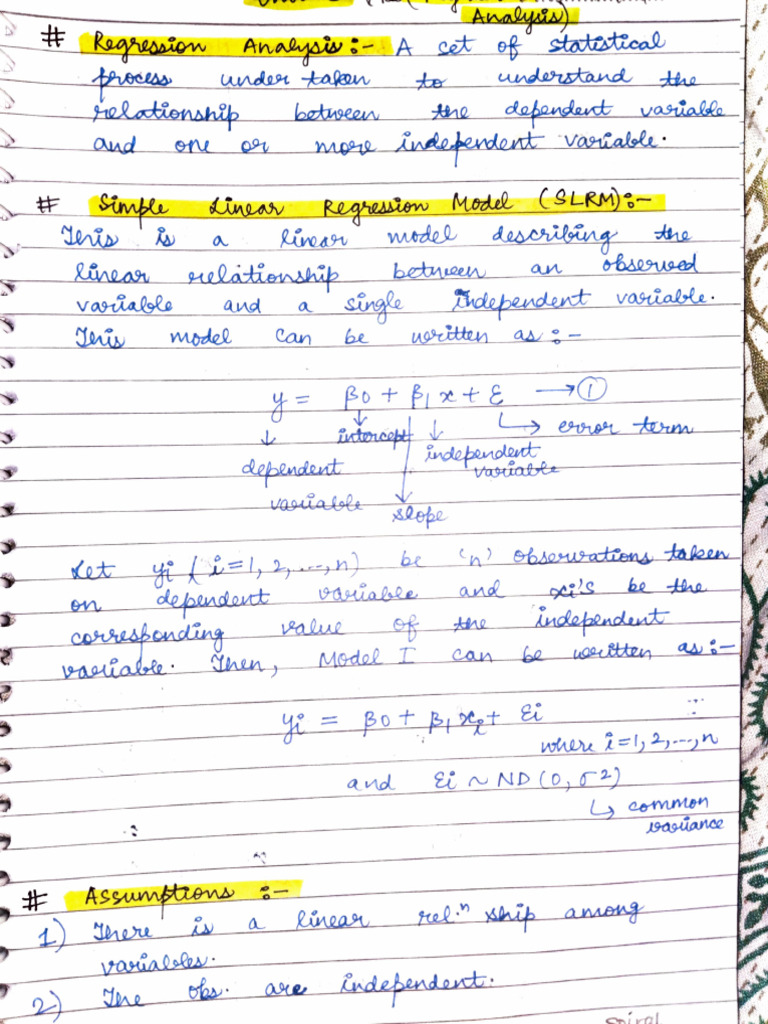 Analysis)
# Regression Analysis :- A set of statistical
process under taken to understand the
relationship between the dependent variable
and one or more independent variable.
# Simple Linear Regression Model (SLRM) :-
This is a linear model describing the
linear relationship between an observed
variable and a single independent variable.
This model can be written as :-
y = β0 + β1 x + ε → ①
intercept
error term
independent
variable
dependent
variable
slope
Let yi (i=1, 2, ..., n) be 'n' observations taken
on dependent variable and xi's be the
corresponding value of the independent
variable. Then, Model I can be written as :-
yi = β0 + β1 xi + εi
where i=1, 2, ..., n
and εi ~ ND (0, σ2)
common
variance
# Assumptions :-
1) There is a linear rel.n ship among
variables.
2) The obs. are independent.